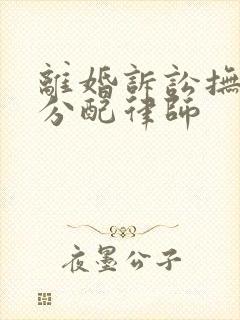 離婚訴訟撫
分配律師
夜墨公子